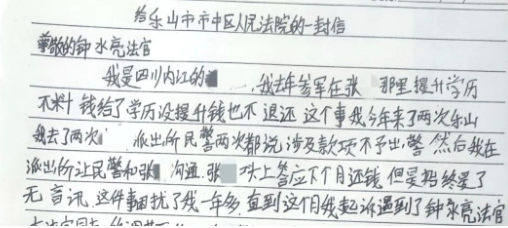 给乐山市市中区人民法院的一封信
尊敬的钟永亮法官
我是四川内江的 我去年参军在张 那里提升学历
不料 钱给了学历没提升钱也不退还 这个事我今年来了两次乐山
我去了两次 派出所 民警两次都说涉及款项不予出警 然后我在
派出所让民警和张 沟通 张 口头上答应下个月还钱 但是始终是了
无音讯 这件事困扰了我一年多 直到这个月我起诉遇到了钟永亮法官